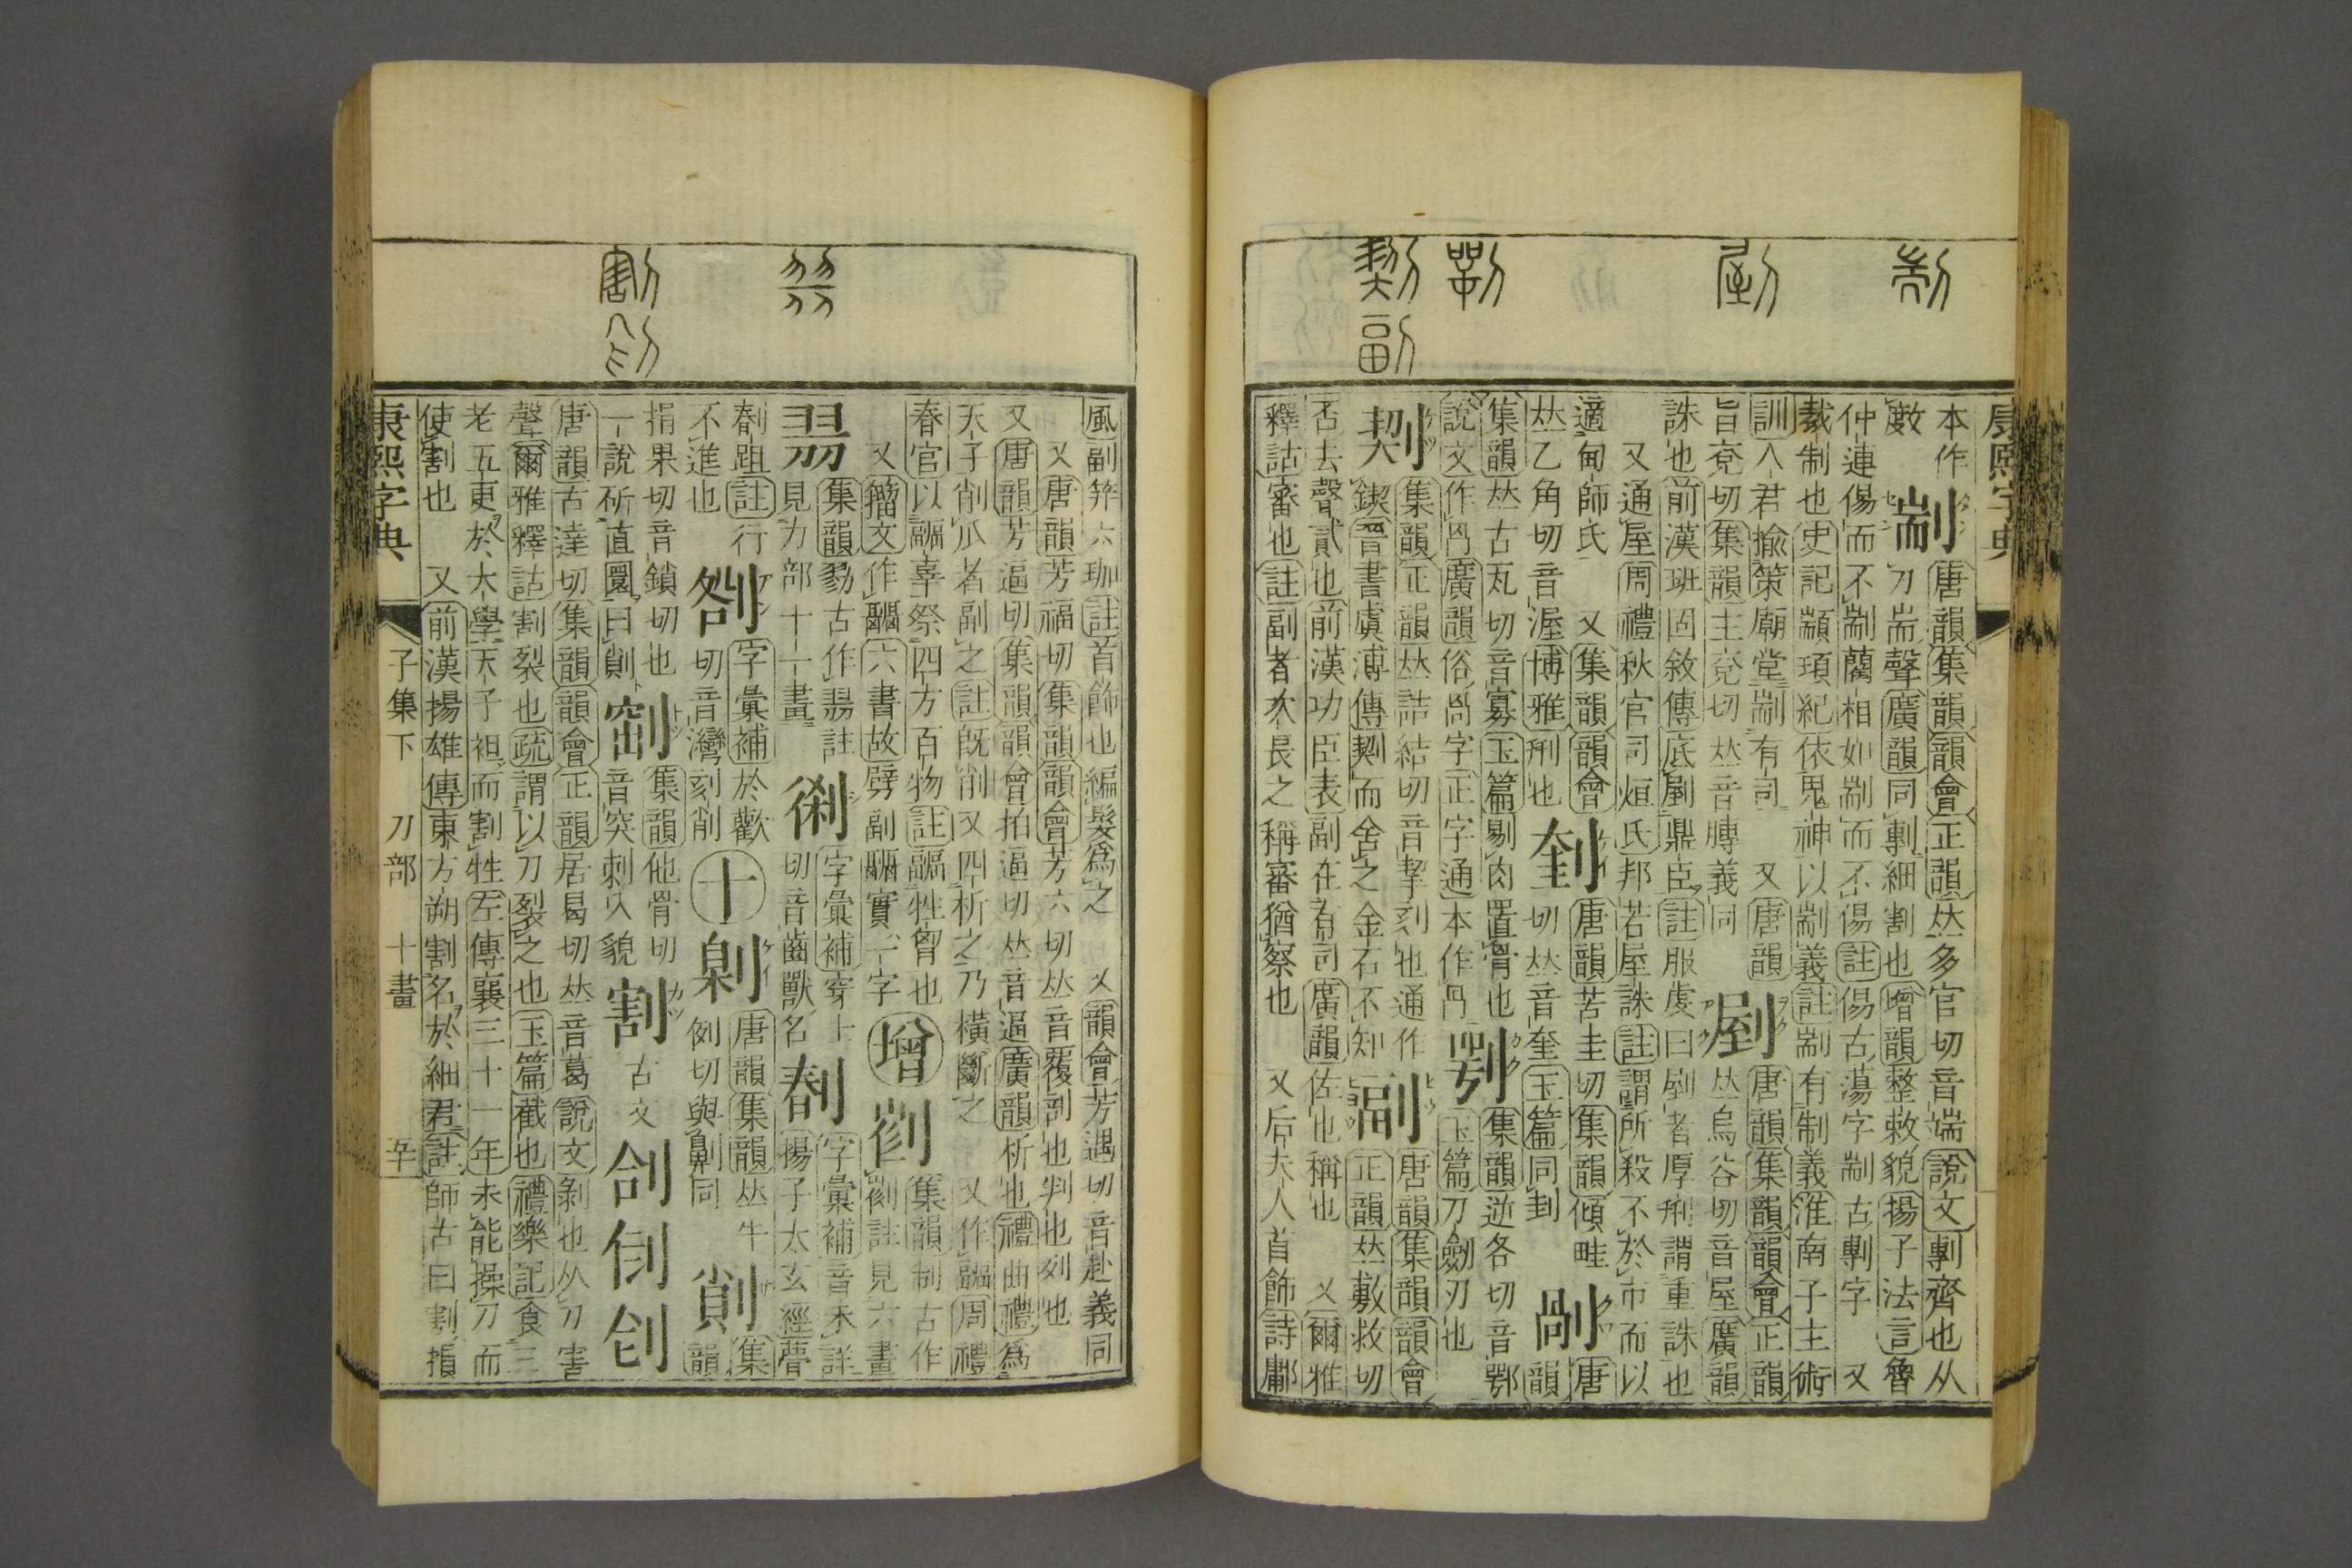 本作
數
剬
唐韻集韻韻會正韻𠀤多官切音端說文剸齊也从
刀耑聲廣韻同剸細割也增韻整敕貌揚子法言魯
仲連傷而不剬藺相如剬而不傷註傷古蕩字剬古剸字 又
裁制也史記顓頊紀依鬼神以剬義註剬有制義淮南子主術
訓人君揄策廟堂剬有司 又唐韻
旨兗切集韻主兗切𠀤音膊義同
剭
唐韻集韻韻會正韻
𠀤烏谷切音屋廣韻
誅也前漢班固敘傳底剭鼎臣註服虔曰剭者厚刑謂重誅也
又通屋周禮秋官司烜氏邦若屋誅註謂所殺不於市而以
適甸師氏 又集韻韻會
𠀤乙角切音渥博雅刑也
唐韻苦圭切集韻傾畦
切𠀤音奎玉篇同刲
剮
唐
韻
集韻𠀤古瓦切音寡玉篇剔肉置骨也
說文作冎廣韻俗咼字正字通本作冎
㓵
集韻逆各切音鄂
玉篇刀劒刃也
㓶
集韻正韻𠀤詰結切音挈刻也通作
鍥晉書虞溥傳㓶而舍之金石不知
副
唐韻集韻韻會
正韻𠀤敷救切
否去聲貳也前漢功臣表副在有司廣韻佐也稱也 又爾雅
釋詁審也註副者次長之稱審猶察也 又后夫人首飾詩鄘
康熙字典
風副笄六珈註首飾也編髮為之 又韻會芳遇切音赴義同
又唐韻芳福切集韻韻會芳六切𠀤音覆剖也判也列也
又唐韻芳逼切集韻韻會拍逼切𠀤音逼廣韻析也禮曲禮為
天子削瓜者副之註旣削又四析之乃橫斷之 又作疈周禮
春官以疈辜祭四方百物註疈牲胷也
又籀文作 六書故劈副疈實一字
增
集韻制古作
註見六畫
集韻 古作 註
見力部十一畫
字彙補穿土
切音齒獸名
字彙補音未詳
揚子太玄經瞢
䟆註行
不進也
字彙補於歡
切音灣刻削
十
劓
唐韻集韻𠀤牛
例切與劓同
集
韻
捐果切音鎖切也
一說斫直圜曰
集韻他骨切
音突刺入貌
割
古文
唐韻古達切集韻韻會正韻居曷切𠀤音葛說文剝也从刀害
聲爾雅釋詁割裂也疏謂以刀裂之也玉篇截也禮樂記食三
老五更於大學天子袒而割牲左傳襄三十一年未能操刀而
使割也 又前漢揚雄傳東方朔割名於細君註師古曰割損
康熙字典 子集下 刀部 十畫